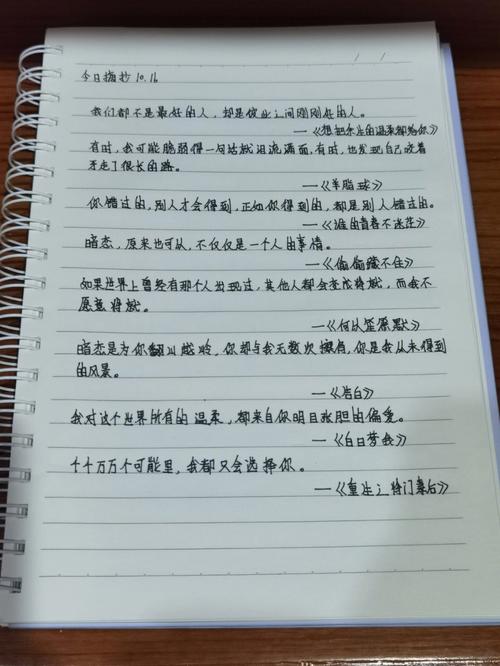 / /
今日摘抄 10.16
我们都不是最好的人，却是彼此之间刚刚好的人。
—《想把余生的温柔都给你》
有时，我可能脆弱得一句话就泪流满面，有时，也发现自己咬着
牙走了很长的路。
—《羊脂球》
你错过的，别人才会得到，正如你得到的，都是别人错过的。
—《谁的青春不迷茫》
暗恋，原来也可以，不仅仅是一个人的事情。
—《偷偷藏不住》
如果世界上曾经有那个人出现过，其他人都会变成将就，而我不
愿意将就。
—《何以笙箫默》
暗恋是为你翻山越岭，你却与我无数次擦肩，你是我从未得到
的风景。
—《告白》
我对这个世界所有的温柔，都来自你明目张胆的偏爱。
—《白日梦我》
千千万万个可能里，我都只会选择你。
—《重生之将门毒后》